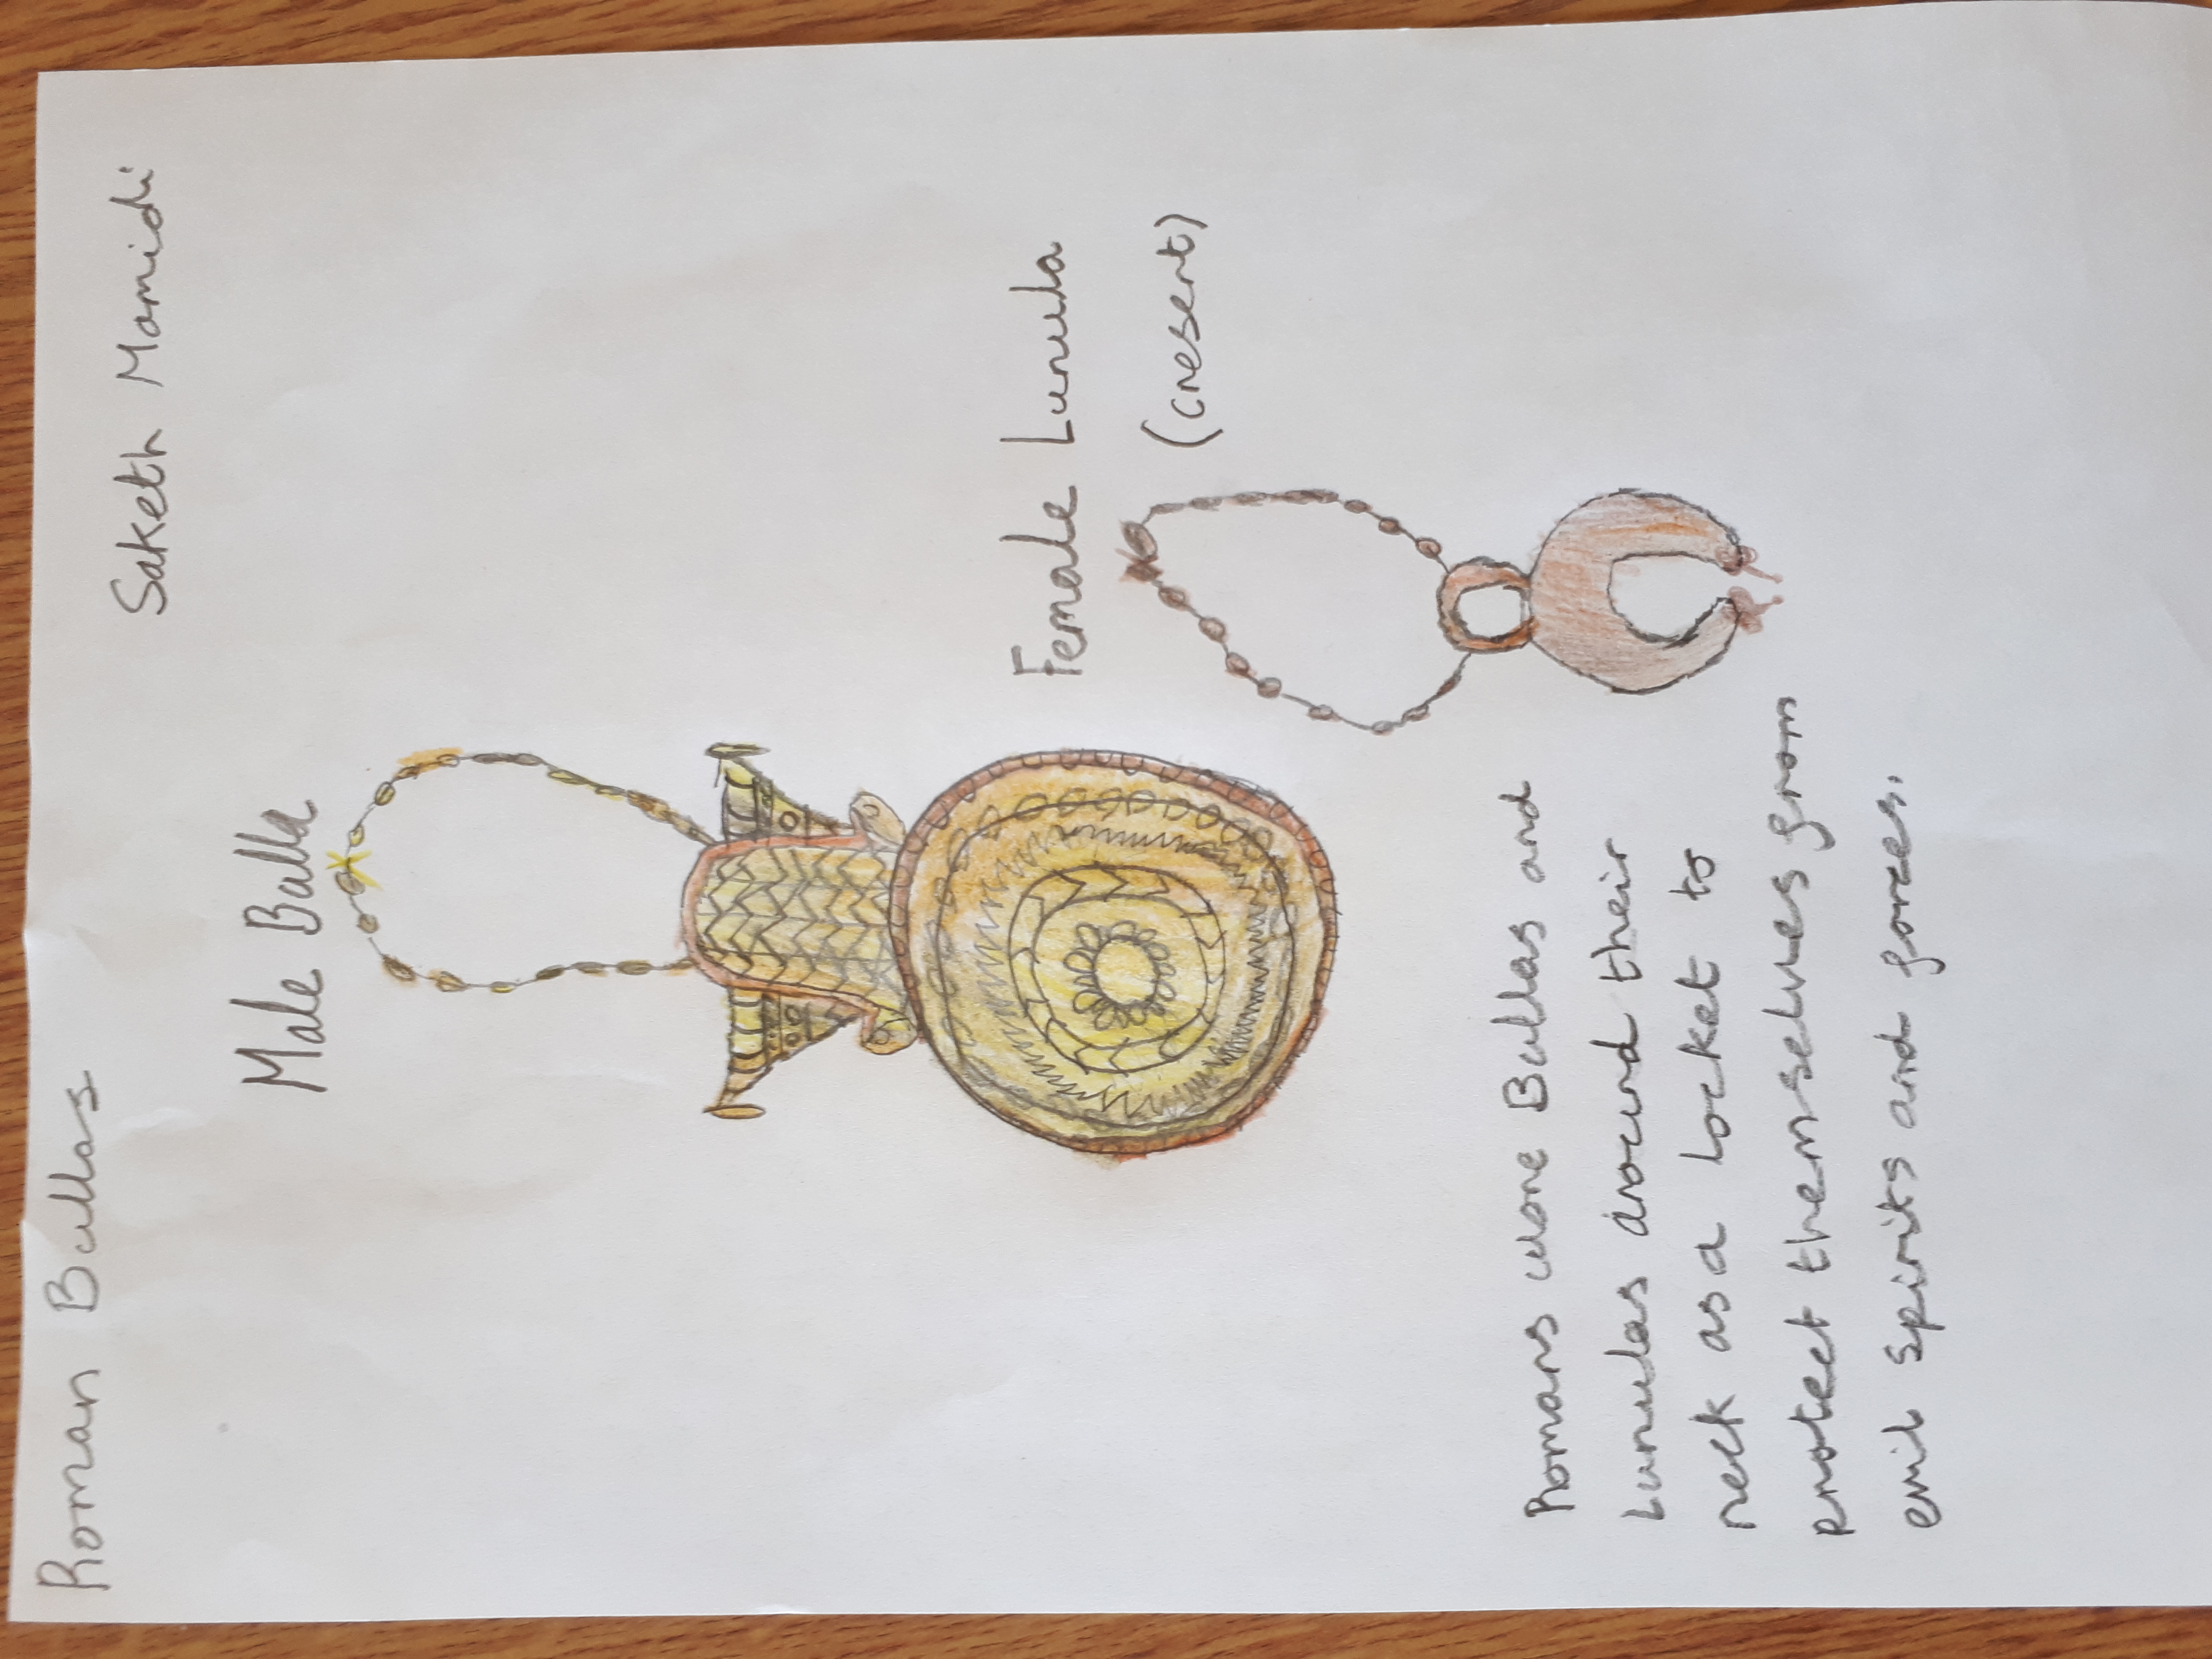 Roman Bullas
Saketh Mamidi
Male Bulla
Female Lunula
(cresent)
Romans wore Bullas and
Lunulas around their
neck as a locket to
protect themselves from
evil spirits and forces.